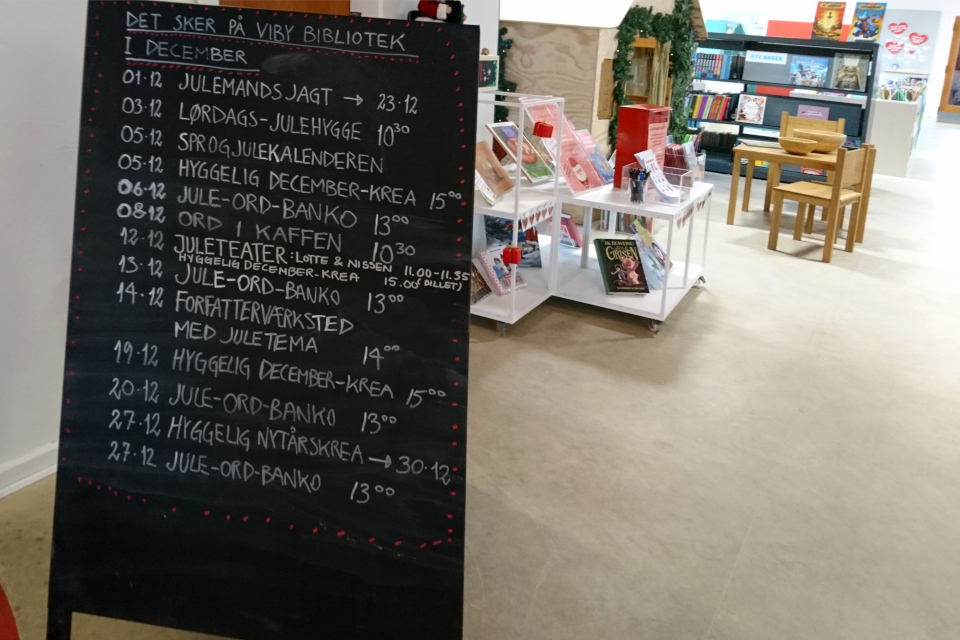 DET SKER PÅ VIBY BIBLIOTEK
I DECEMBER
01.12 JULEMANDSJAGT → 23.12
03.12 LØRDAGS-JULEHYGGE 10³⁰
05.12 SPROGJULEKALENDEREN
05.12 HYGGELIG DECEMBER-KREA 15⁰⁰
06.12 JULE-ORD-BANKO 13⁰⁰
08.12 ORD I KAFFEN 10³⁰
12.12 JULETEATER: LOTTE & NISSEN 11.00-11.35
HYGGELIG DECEMBER-KREA 15.00 BILLET)
13.12 JULE-ORD-BANKO 13⁰⁰
14.12 FORFATTERVÆRKSTED
MED JULETEMA 14⁰⁰
19.12 HYGGELIG DECEMBER-KREA 15⁰⁰
20.12 JULE-ORD-BANKO 13⁰⁰
27.12 HYGGELIG NYTÅRSKREA → 30.12
27.12 JULE-ORD-BANKO 13⁰⁰
NYE BØGER
GRISEN